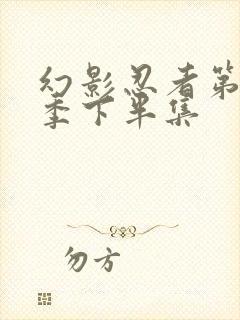 幻影忍者第
季下半集
勿方